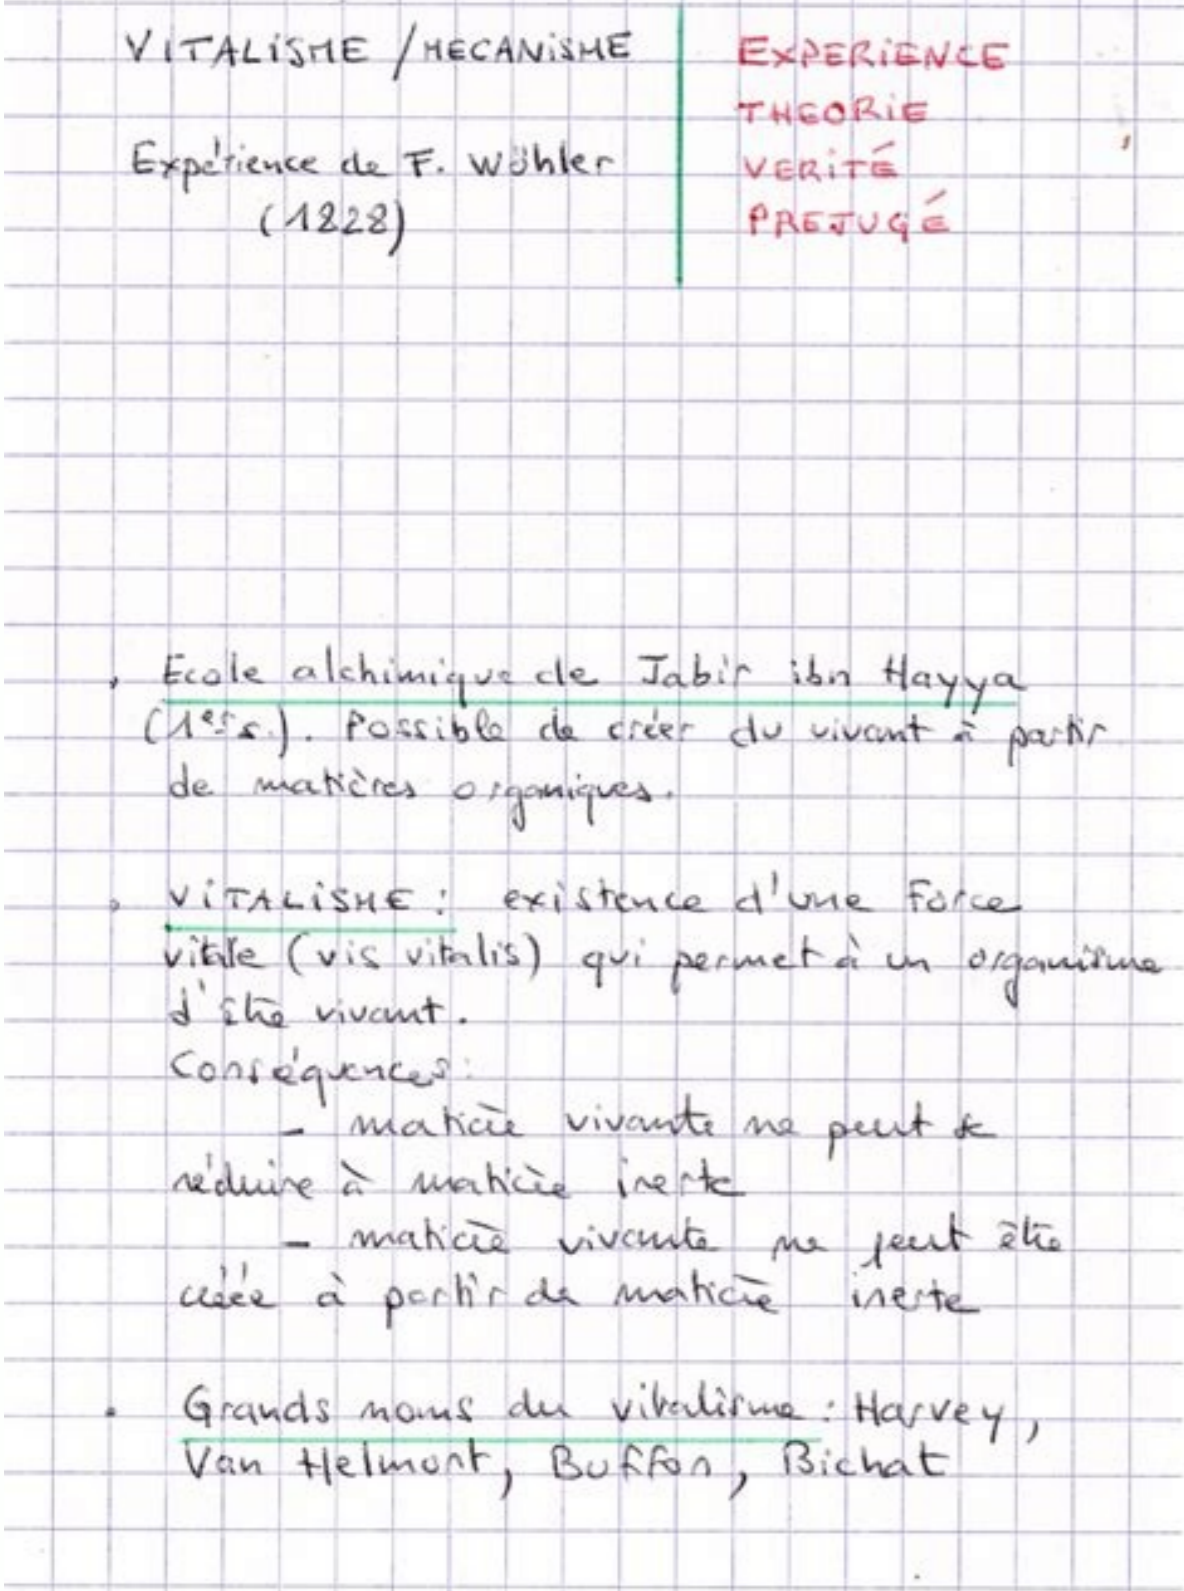 VITALISME / MECANISME
Expérience de F. Wöhler
(1828)
EXPERIENCE
THEORIE
VERITÉ
PREJUGÉ
Ecole alchimique de Jabir ibn Hayya
(1er s.). Possible de créer du vivant à partir
de matières organiques.
VITALISME : existence d'une force
vitale (vis vitalis) qui permet à un organisme
d'être vivant.
Conséquences :
- matière vivante ne peut se
réduire à matière inerte
- matière vivante ne peut être
créée à partir de matière inerte
Grands noms du vitalisme : Harvey,
Van Helmont, Buffon, Bichat